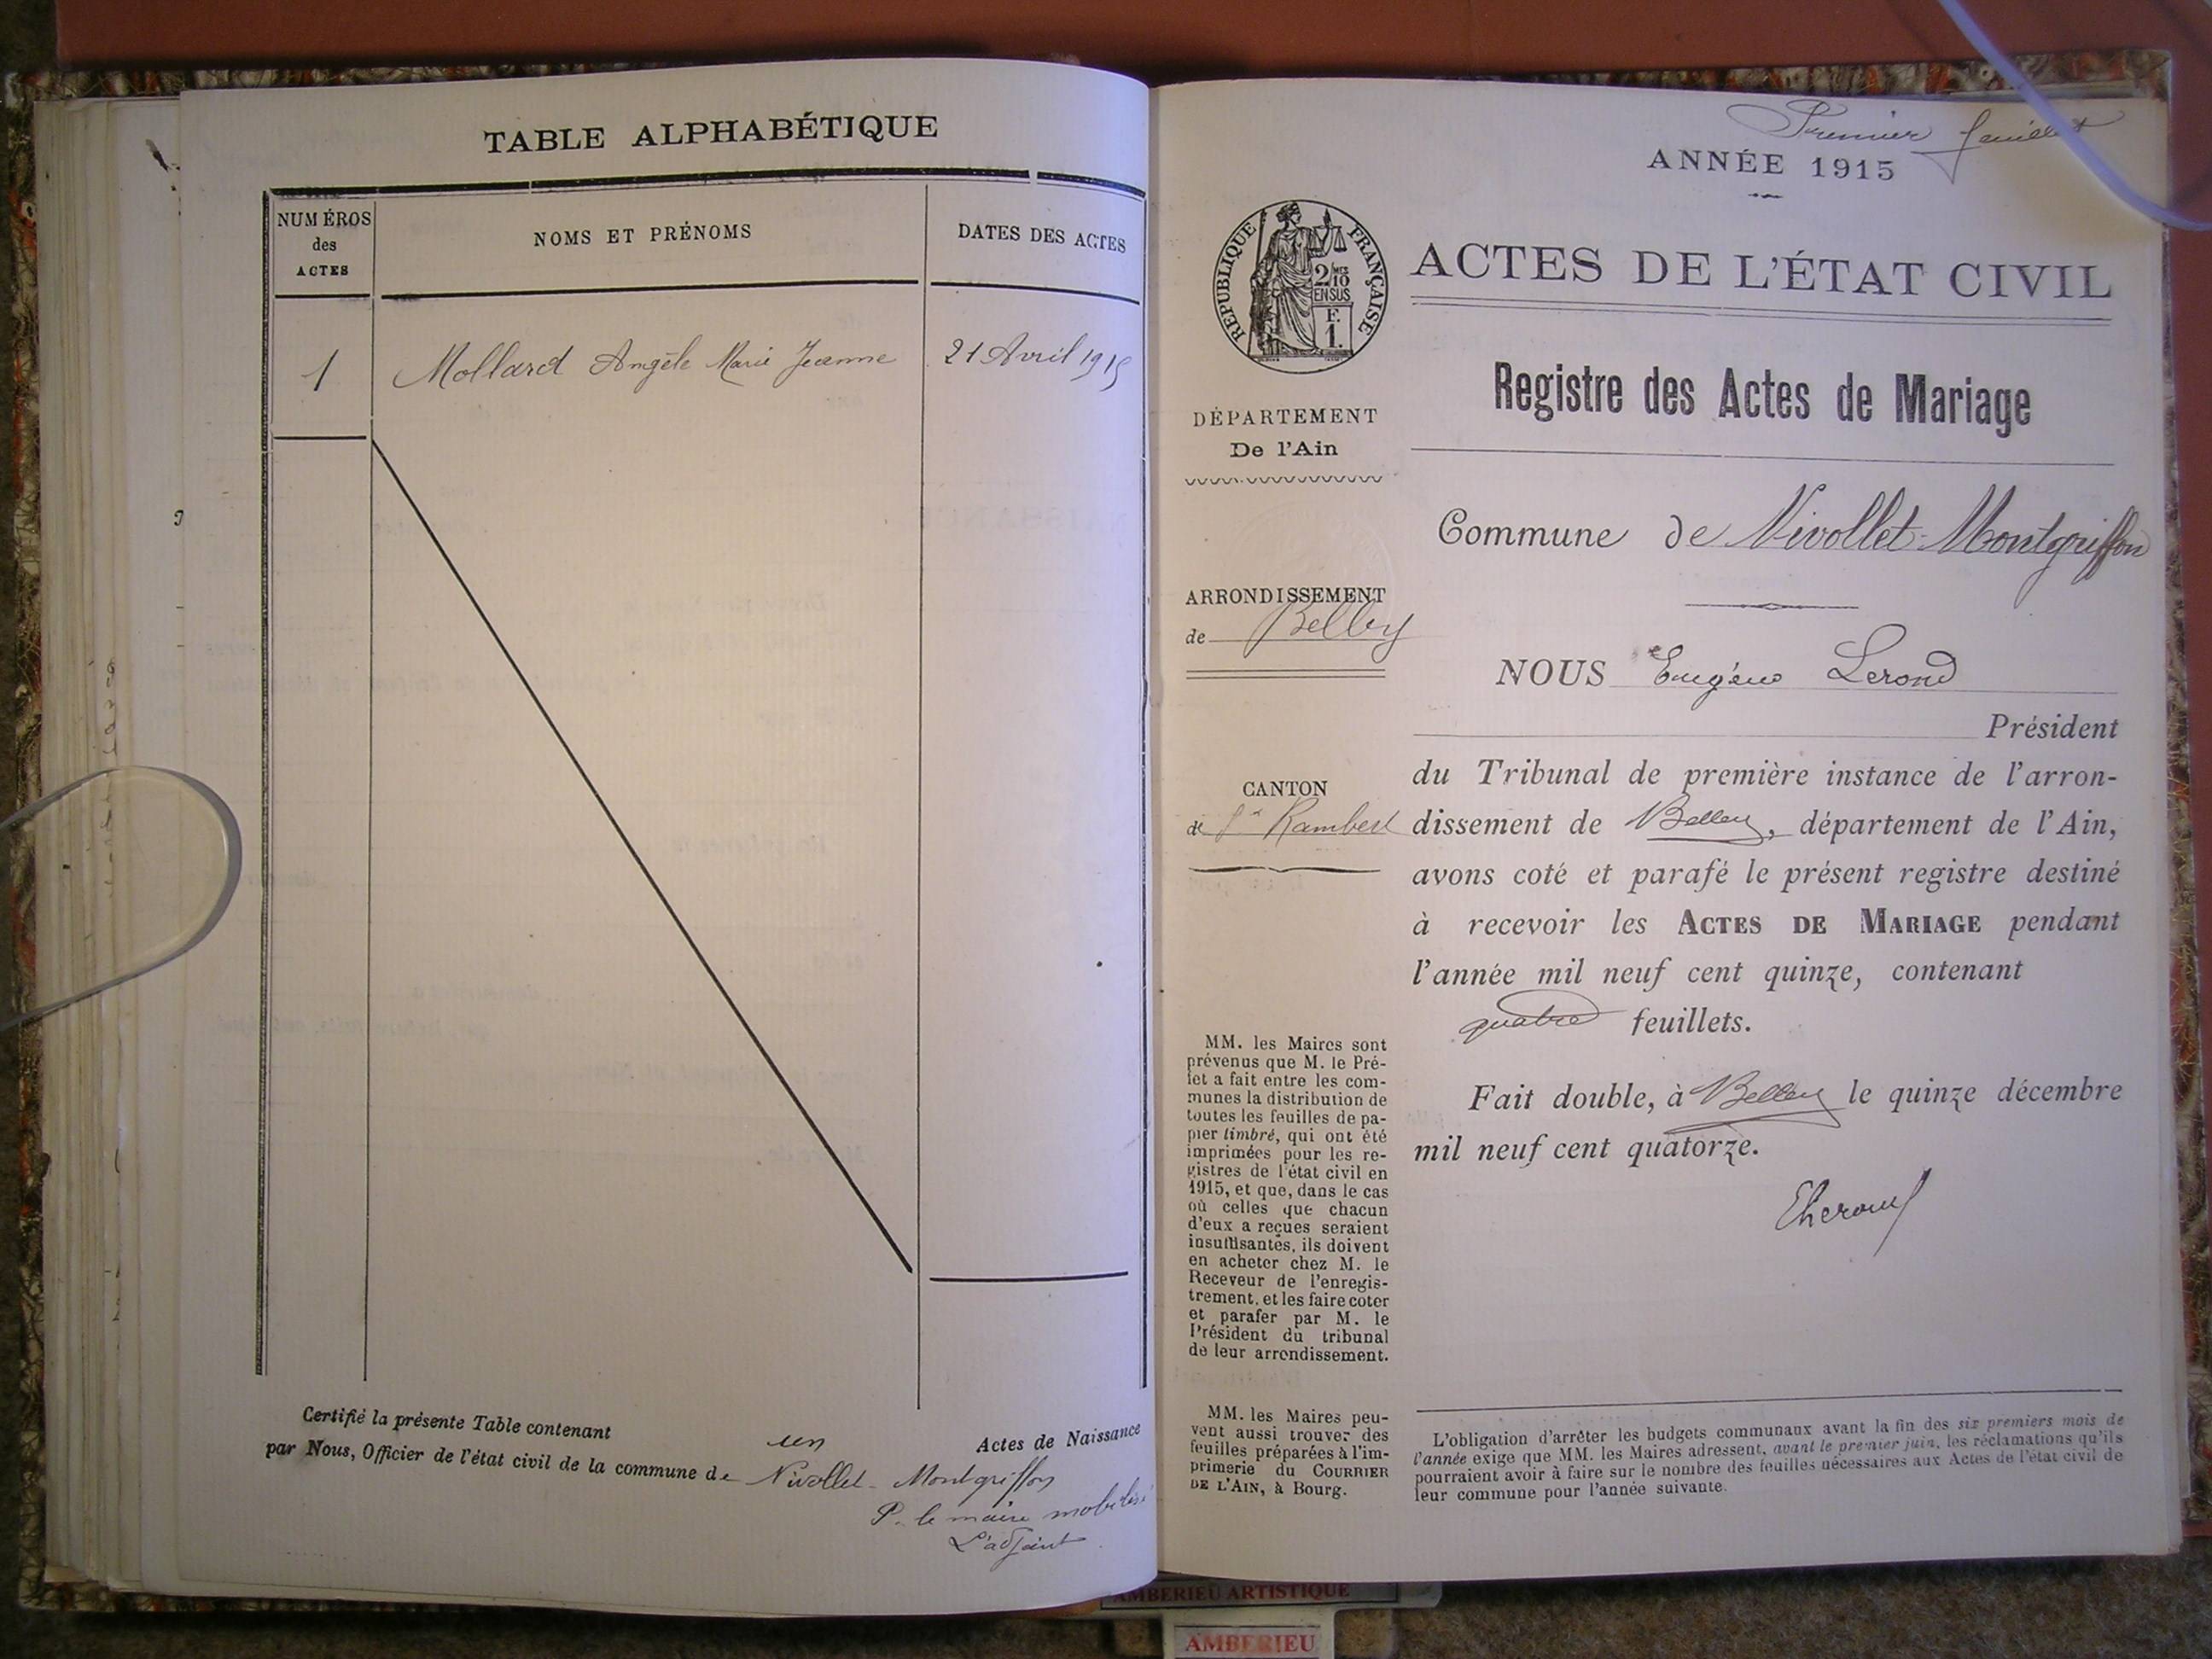 TABLE ALPHABÉTIQUE
NUMÉROS
des
ACTES
NOMS ET PRÉNOMS
DATES DES ACTES
1
Mollard Angèle Marie Jeanne
21 Avril 1915
Certifié la présente Table contenant un Actes de Naissance
par Nous, Officier de l'état civil de la commune de Nivollet-Montgriffon
P. le maire mobilisé
L'adjoint
Premier feuillet
ANNÉE 1915
RÉPUBLIQUE FRANÇAISE
2/10 MES
EN SUS
F.
1.
ACTES DE L'ÉTAT CIVIL
Registre des Actes de Mariage
DÉPARTEMENT
De l'Ain
Commune de Nivollet-Montgriffon
ARRONDISSEMENT
de Belley
CANTON
de St Rambert
NOUS Eugène Lerond
Président
du Tribunal de première instance de l'arron-
dissement de Belley, département de l'Ain,
avons coté et parafé le présent registre destiné
à recevoir les ACTES DE MARIAGE pendant
l'année mil neuf cent quinze, contenant
quatre feuillets.
Fait double, à Belley le quinze décembre
mil neuf cent quatorze.
MM. les Maires sont
prévenus que M. le Pré-
fet a fait entre les com-
munes la distribution de
toutes les feuilles de pa-
pier timbré, qui ont été
imprimées pour les re-
gistres de l'état civil en
1915, et que, dans le cas
où celles que chacun
d'eux a reçues seraient
insuffisantes, ils doivent
en acheter chez M. le
Receveur de l'enregis-
trement, et les faire coter
et parafer par M. le
Président du tribunal
de leur arrondissement.
MM. les Maires peu-
vent aussi trouver des
feuilles préparées à l'im-
primerie du COURRIER
DE L'AIN, à Bourg.
L'obligation d'arrêter les budgets communaux avant la fin des six premiers mois de
l'année exige que MM. les Maires adressent, avant le premier juin, les réclamations qu'ils
pourraient avoir à faire sur le nombre des feuilles nécessaires aux Actes de l'état civil de
leur commune pour l'année suivante.
AMBERIEU ARTISTIQUE
AMBERIEU